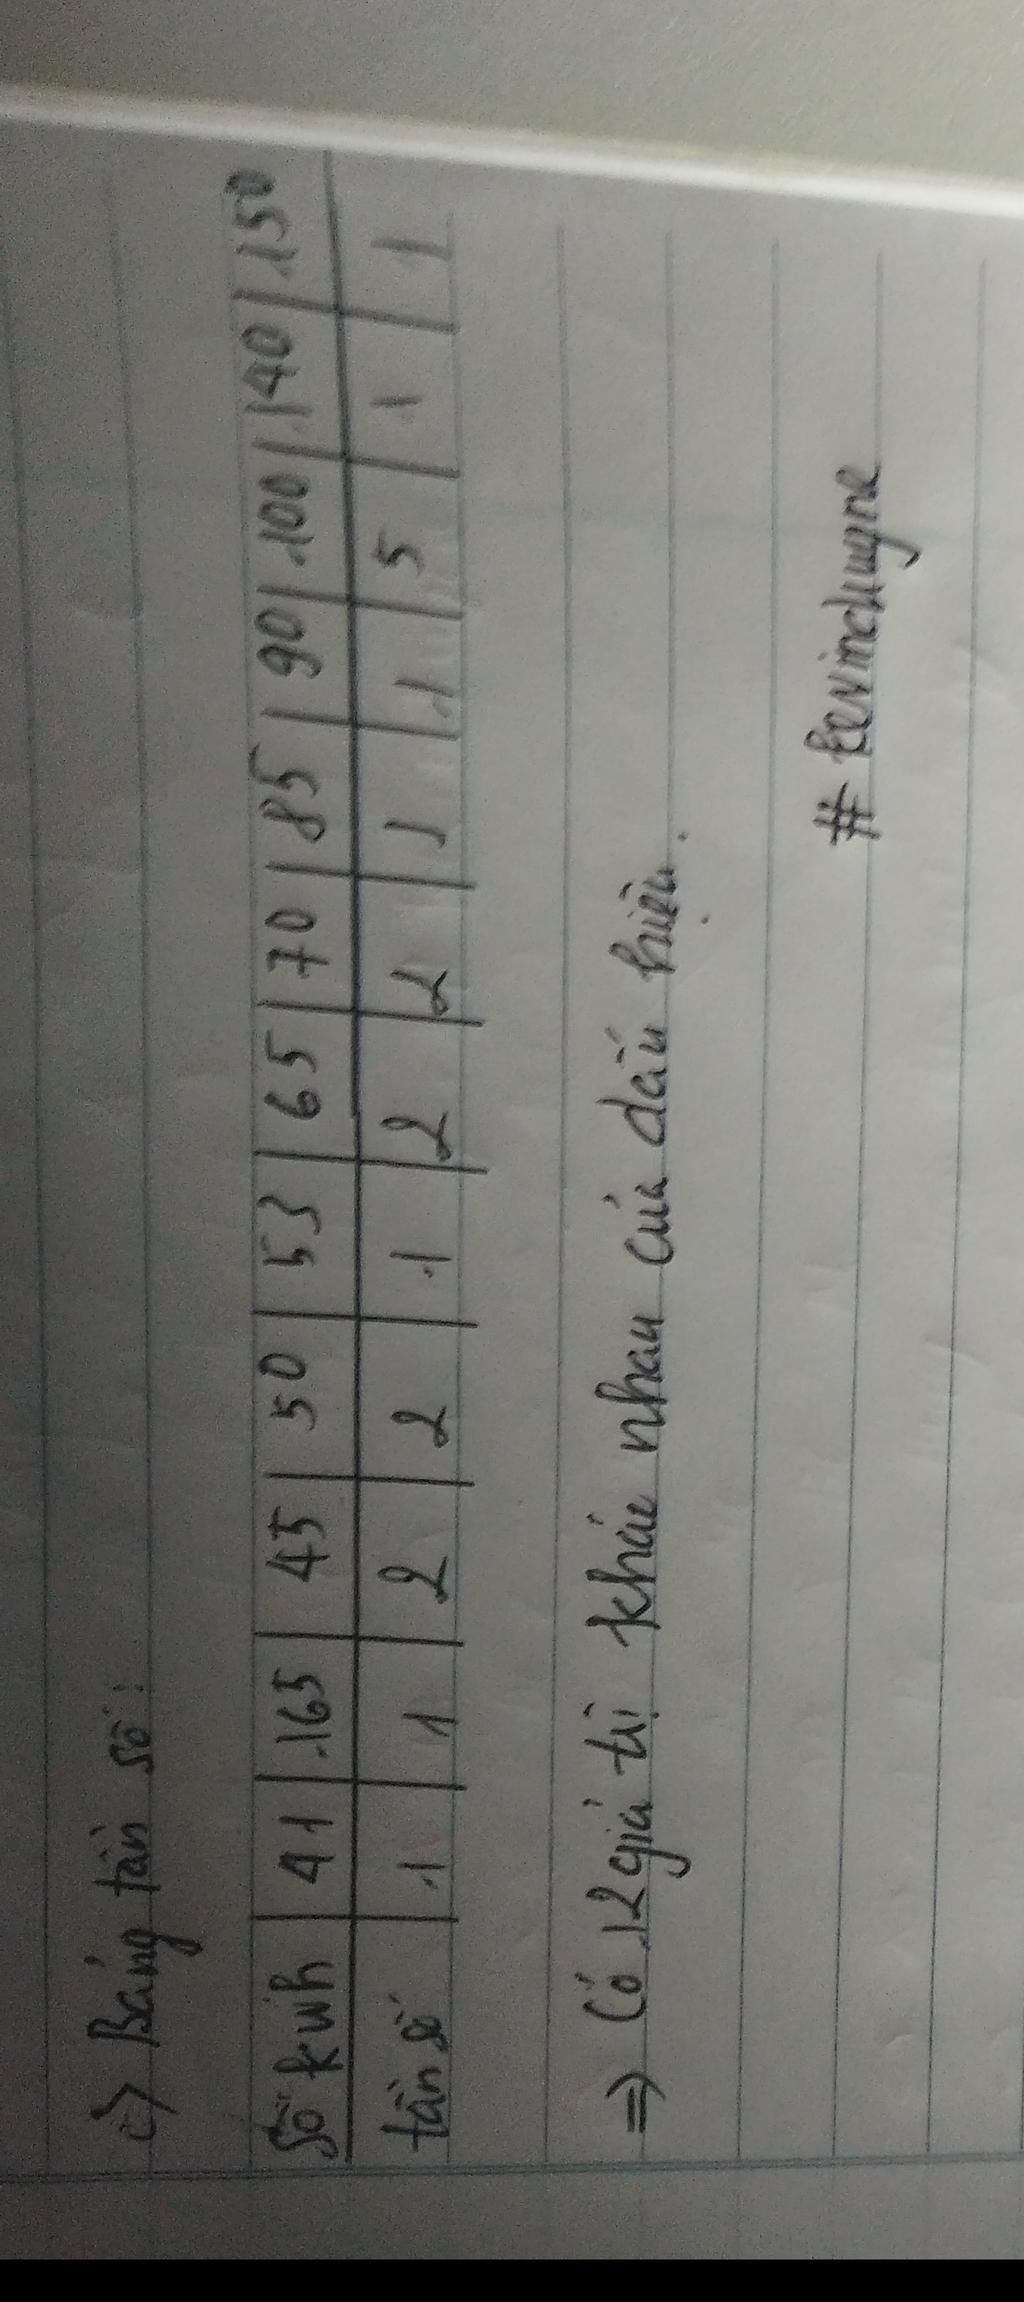 c) Bảng tần số:
Số kwh | 41 | 165 | 45 | 50 | 53 | 65 | 70 | 85 | 90 | 100 | 140 | 150
tần số | 1 | 1 | 2 | 2 | 1 | 2 | 2 | 1 | 1 | 5 | 1 | 1
=> Có 12 giá trị khác nhau của dấu hiệu.
# kevinchugne